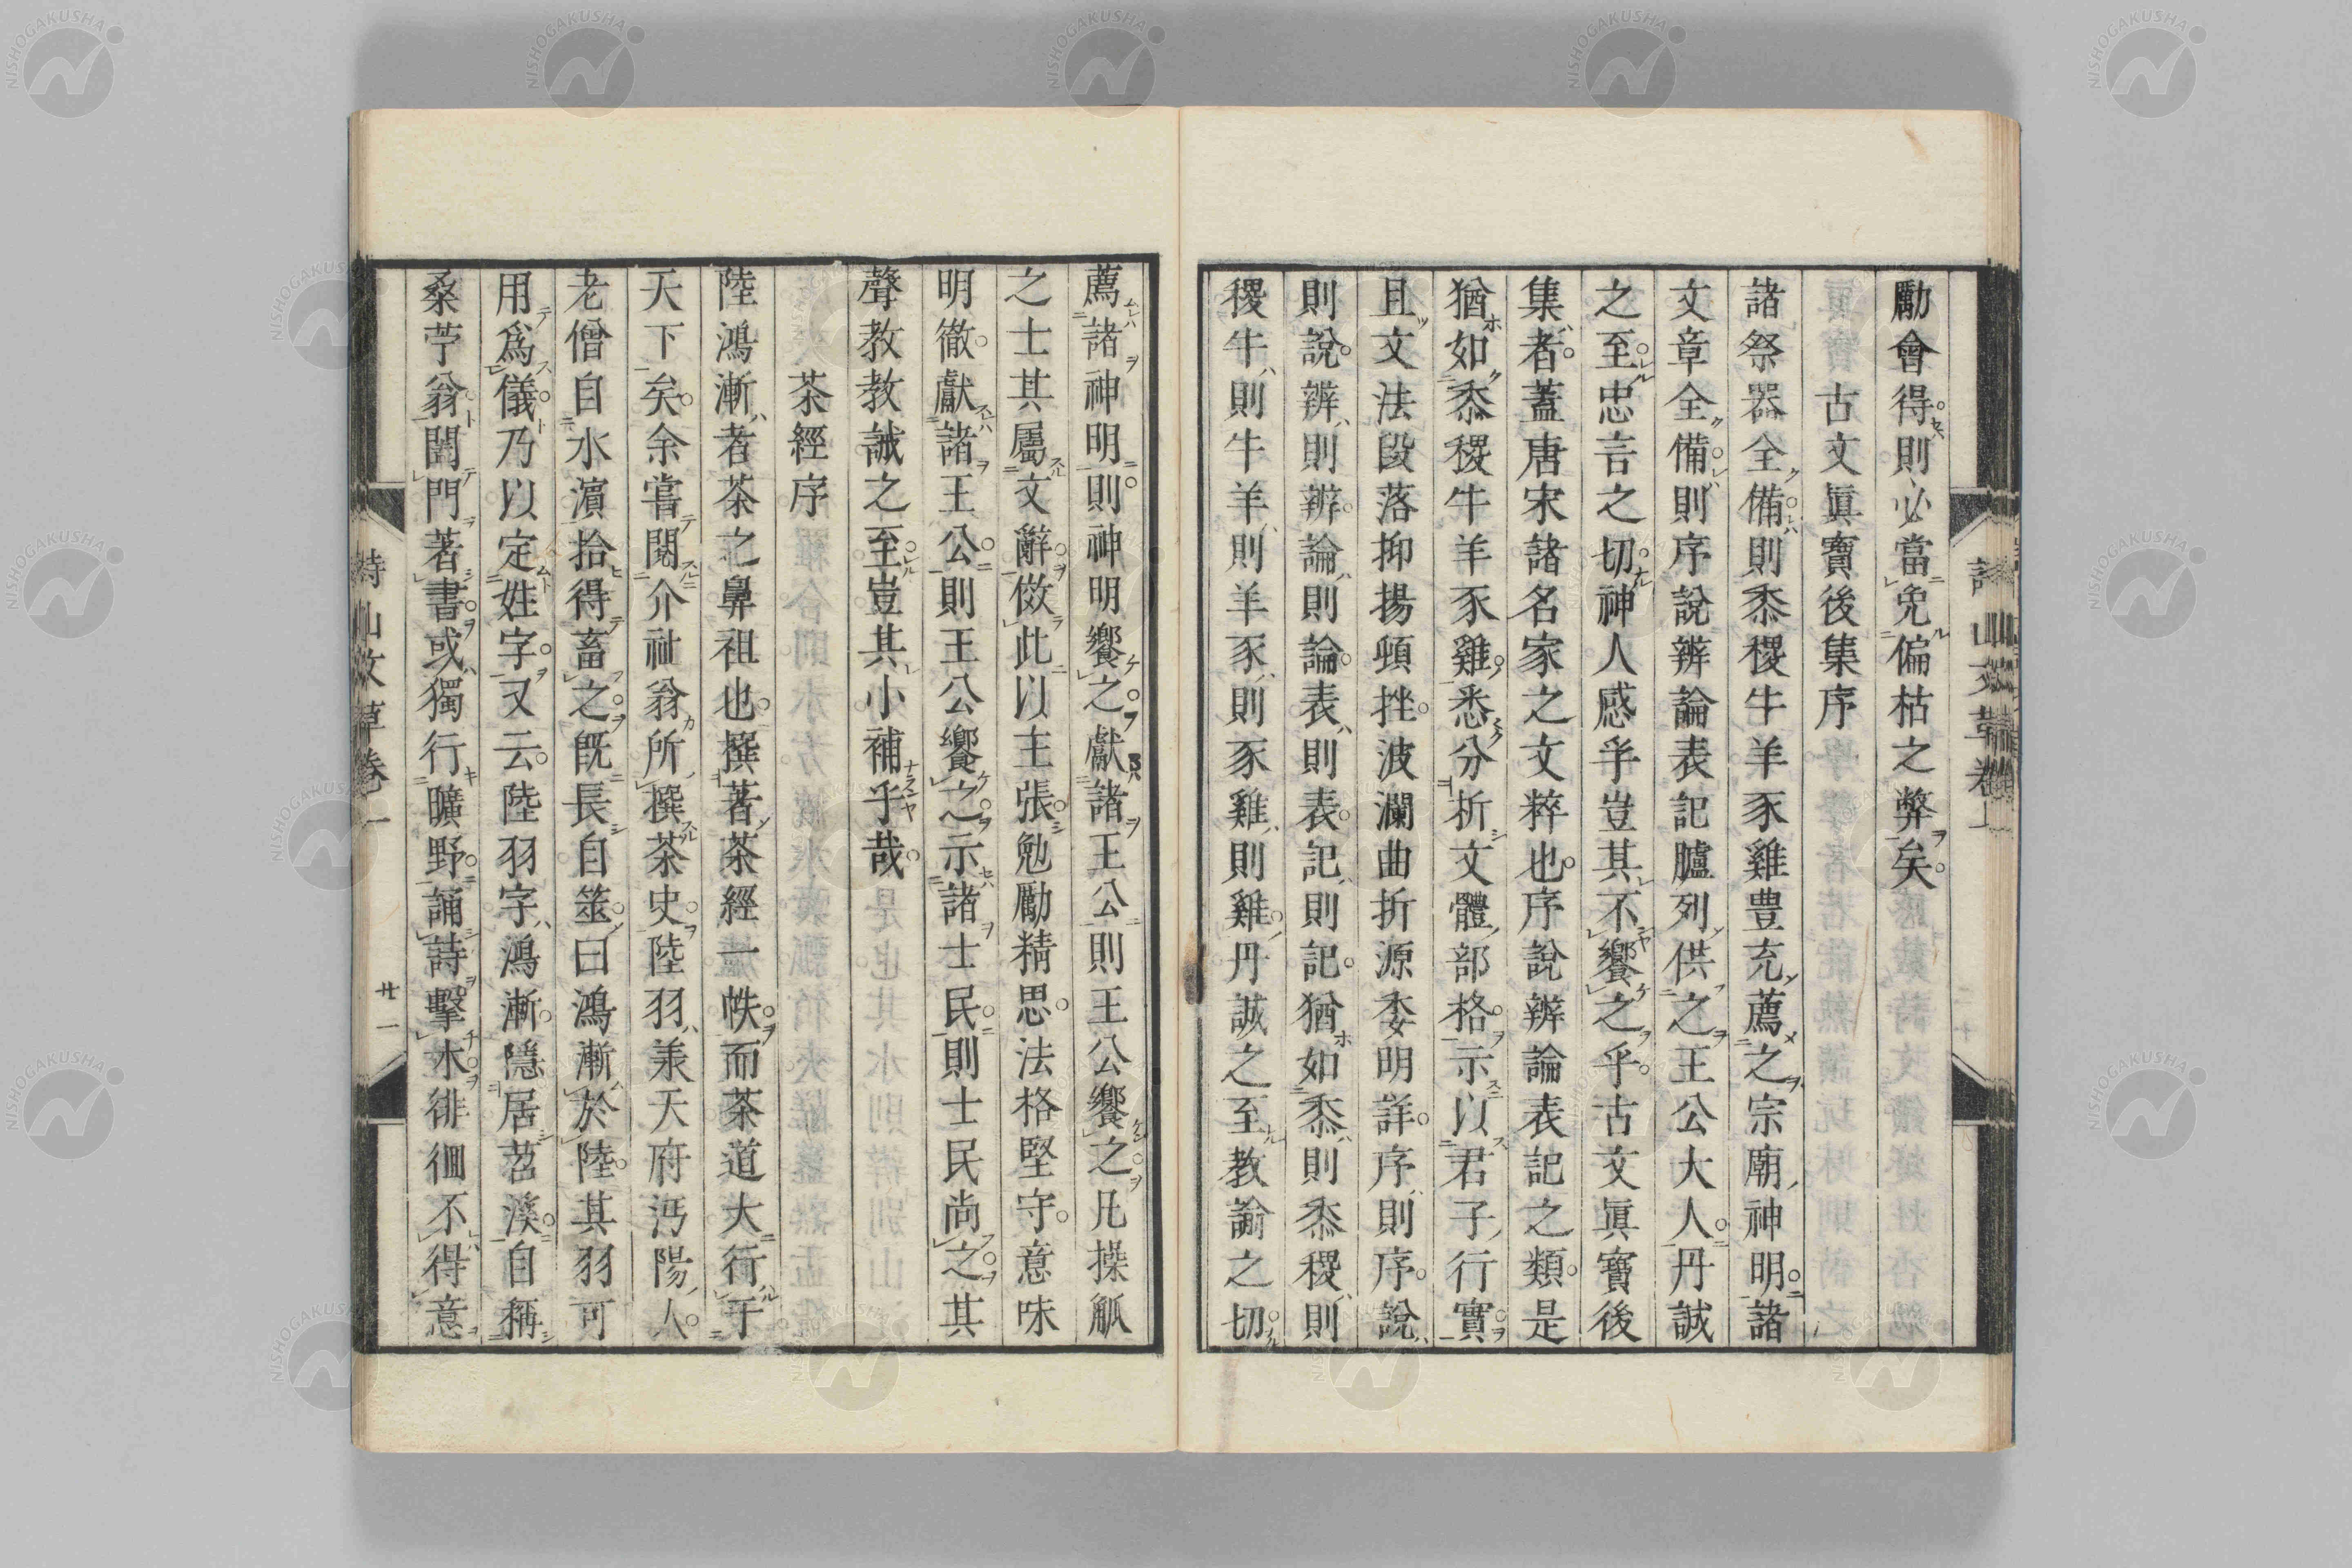 勵會得則必當免偏枯之弊矣
古文眞寶後集序
諸祭器全備則黍稷牛羊豕雞豊充薦之宗廟神明諸
文章全備則序說辨論表記臚列供之王公大人丹誠
之至忠言之切神人感乎豈其不饗之乎古文眞寶後
集者蓋唐宋諸名家之文粹也序說辨論表記之類是
猶如黍稷牛羊豕雞悉分折文體部格示以君子行實
且文法段落抑揚頓挫波瀾曲折源委明詳序則序說
則說辨則辨論則論表則表記則記猶如黍則黍稷則
稷牛則牛羊則羊豕則豕雞則雞丹誠之至教諭之切
薦諸神明則神明饗之獻諸王公則王公饗之凡操觚
之士其屬文辭倣此以主張勉勵精思法格堅守意味
明徹獻諸王公則王公饗之示諸士民則士民尚之其
聲教教誡之至豈其小補乎哉
茶經序
陸鴻漸者茶之鼻祖也撰著茶經一帙而茶道大行于
天下矣余嘗閱介祉翁所撰茶史陸羽乘天府沔陽人
老僧自水濵拾得畜之旣長自筮曰鴻漸於陸其羽可
用爲儀乃以定姓字又云陸羽字鴻漸隱居苕溪自稱
桑苧翁闔門著書或獨行曠野誦詩擊木徘徊不得意
詩山文草卷一
廿一
NISHOGAKUSHA